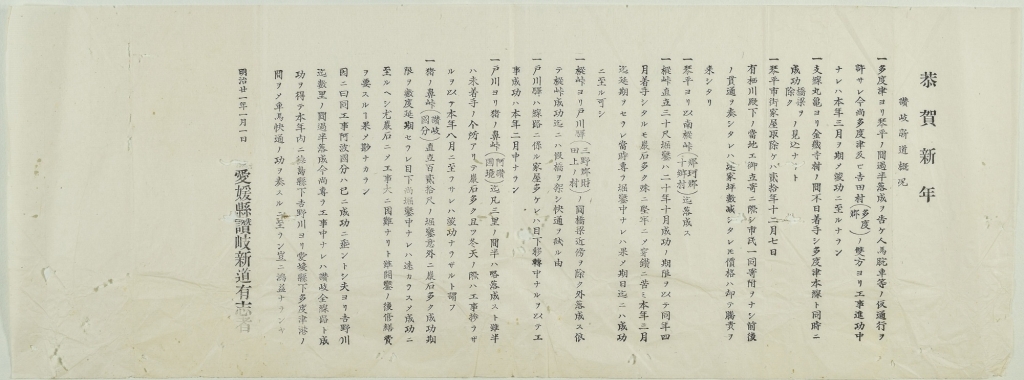 恭賀新年
讃岐新道概況
一多度津ヨリ琴平ノ間過半落成ヲ告ケ人馬舵車等ノ仮通行ヲ
許サレ今尚多度津及ヒ吉田村(多度郡)ノ双方ヨリ工事進功中
ナレハ本年三月ヲ期メ竣功ニ至ルナラン
一支線丸亀ヨリ金蔵寺村ノ間不日着手シ多度津本線ト同時ニ
成功橋梁ヲ除クノ見込ナート
一琴平市街家屋取除ケハ貳拾年十二月七日
有栖川殿下ノ當地エ御立寄ニ際シ市民一同寄附ヲナシ前後
ノ貫通ヲ奏シタレハ建家坪数减シタレモ價格ハ却テ騰貴ヲ
来シタリ
一琴平ヨリ以南樅峠(那珂郡十郷村)迄落成ス
一樅峠直立三十尺堀鑿ハ二十年十月成功ノ期限ヲ以テ同年四
月着手シタルモ巖石多ク殊ニ堅牢ニメ穿鑿ニ苦ミ本年三月
迄延期ヲセラレ當時専ラ堀鑿中ナレハ果メ期日迄ニハ成功
ニ至ル可シ
一樅峠ヨリ戸川驛(三野郡財田上ノ村)ノ間橋梁近傍ヲ除ク外落成ス依
テ樅峠成功迄ニハ假橋ヲ架シ快通ヲ謀ル由
一戸川驛ハ線路ニ係ル家屋多ケレハ目下移轉中ナルヲ以テ工
事成功ハ本年二月中ナラン
一戸川ヨリ猪ノ鼻峠(阿讃国境)迄凡三里ノ間半ハ略落成スト雖半
ハ未着手ノ个所アリテ巖石多ク且ツ冬天ノ際ハ工事捗ラザ
ルヲ以テ本年八月ニ至ラサレハ竣功ナラザルト謂フ
一猪ノ鼻峠(讃岐国分)直立百貳拾尺ノ堀鑿意外ニ巖石多ク成功期
限ヲ数度延期セラレ目下尚堀鑿中ナレハ速カラスメ成功ニ
至ルヘシ尤巖石ニメ工事大ニ困難ナリト雖開鑿ノ後修繕費
ヲ要スルモ果メ尠ナカラン
因ニ曰同工事阿波国分ハ已ニ成功ニ垂ントシ夫ヨリ吉野川
迄数里ノ間過半落成今尚専ラ工事中ナレハ讃岐全線路ト成
功ヲ得テ本年内ニ徳島縣下吉野川ヨリ愛媛縣下多度津港ノ
間ヲメ車馬快通ノ功ヲ奏スルニ至ラン豈ニ鴻益ナラシキ
明治廿一年一月一日
愛媛縣讃岐新道有志者